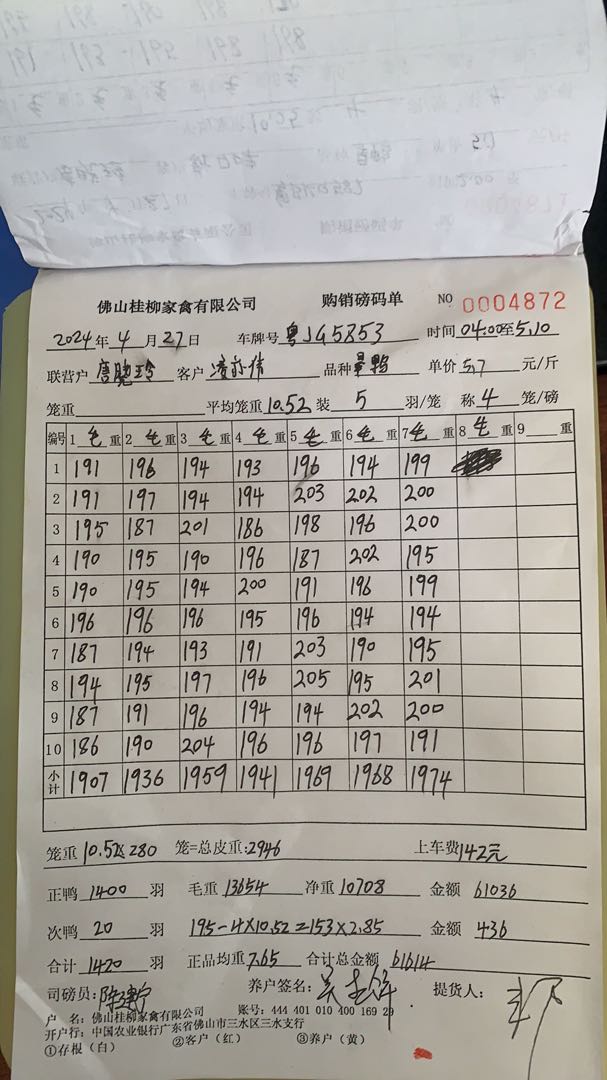 佛山桂柳家禽有限公司 购销磅码单 NO 0004872
2024年4月27日 车牌号 粤JG5853 时间 04:00至5:10
联营户 唐晓玲 客户 品种 单价 5.7 元/斤
笼重 平均笼重 10.52 装 5 羽/笼 称 4 笼/磅
编号 1 毛 重 2 毛 重 3 毛 重 4 毛 重 5 毛 重 6 毛 重 7 毛 重 8 毛 重 9 重
1 191 196 194 193 196 194 199
2 191 197 194 194 203 202 200
3 195 187 201 186 198 196 200
4 190 195 190 196 187 202 195
5 190 195 194 200 191 196 199
6 196 196 196 195 196 194 194
7 187 194 193 191 203 190 195
8 194 195 197 196 205 195 201
9 187 191 196 194 194 202 200
10 186 190 204 196 196 197 191
小计 1907 1936 1959 1941 1969 1968 1974
笼重 10.52×280 笼=总皮重:2946 上车费 142元
正鸭 1400 羽 毛重 13654 净重 10708 金额 61036
次鸭 20 羽 195-4×10.52=153×2.85 金额 436
合计 1420 羽 正品均重 7.65 合计总金额 61614
司磅员: 养户签名: 提货人:
户 名: 佛山桂柳家禽有限公司 账号: 444 401 010 400 169 29
开户行: 中国农业银行广东省佛山市三水区三水支行
①存根（白） ②客户（红） ③养户（黄）